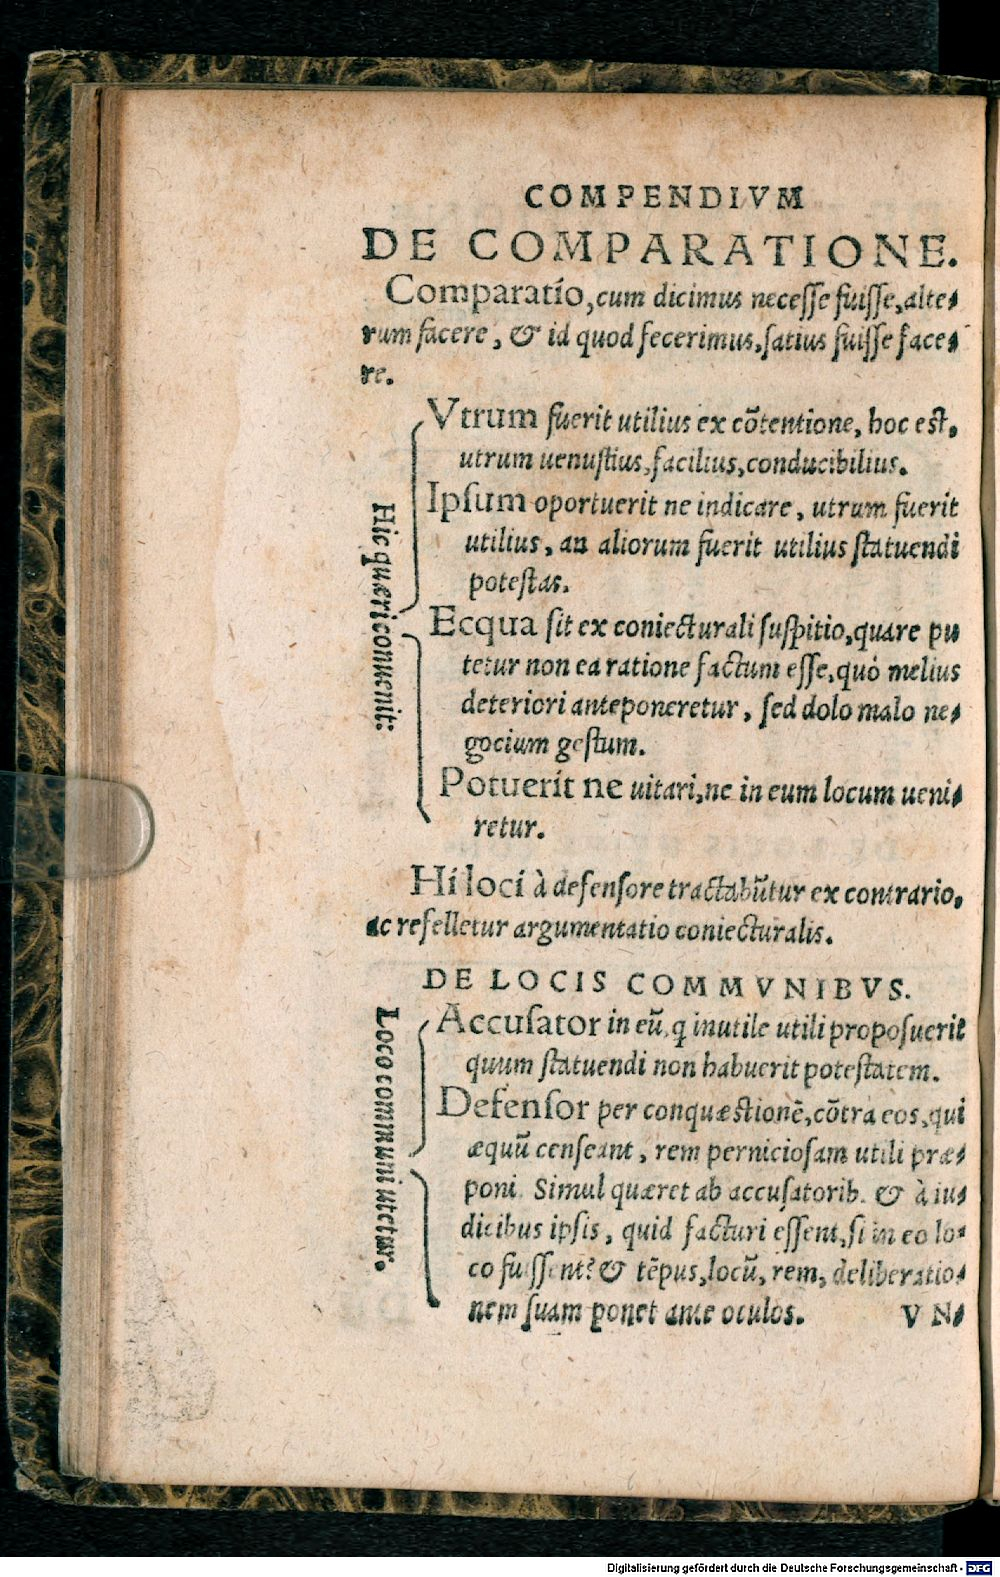 COMPENDIVM
DE COMPARATIONE.
Comparatio, cum dicimus necesse fuisse, alte-
rum facere, & id quod fecerimus, satius fuisse face-
re.
Hic quæri conuenit:
Vtrum fuerit utilius ex cõtentione, hoc est,
utrum uenustius, facilius, conducibilius.
Ipsum oportuerit ne indicare, utrum fuerit
utilius, an aliorum fuerit utilius statuendi
potestas.
Ecqua sit ex coniecturali suspitio, quare pu
tetur non ea ratione factum esse, quò melius
deteriori anteponeretur, sed dolo malo ne-
gocium gestum.
Potuerit ne uitari, ne in eum locum ueni-
retur.
Hi loci à defensore tractabũtur ex contrario,
ac refelletur argumentatio coniecturalis.
DE LOCIS COMMVNIBVS.
Loco communi utetur.
Accusator in eũ, q inutile utili proposuerit
quum statuendi non habuerit potestatem.
Defensor per conquæstionẽ, cõtra eos, qui
æquũ censeant, rem perniciosam utili præ-
poni. Simul quæret ab accusatorib. & à iu-
dicibus ipsis, quid facturi essent, si in eo lo-
co fuissent? & tẽpus, locũ, rem, deliberatio-
nem suam ponet ante oculos. VN-
Digitalisierung gefördert durch die Deutsche Forschungsgemeinschaft - DFG